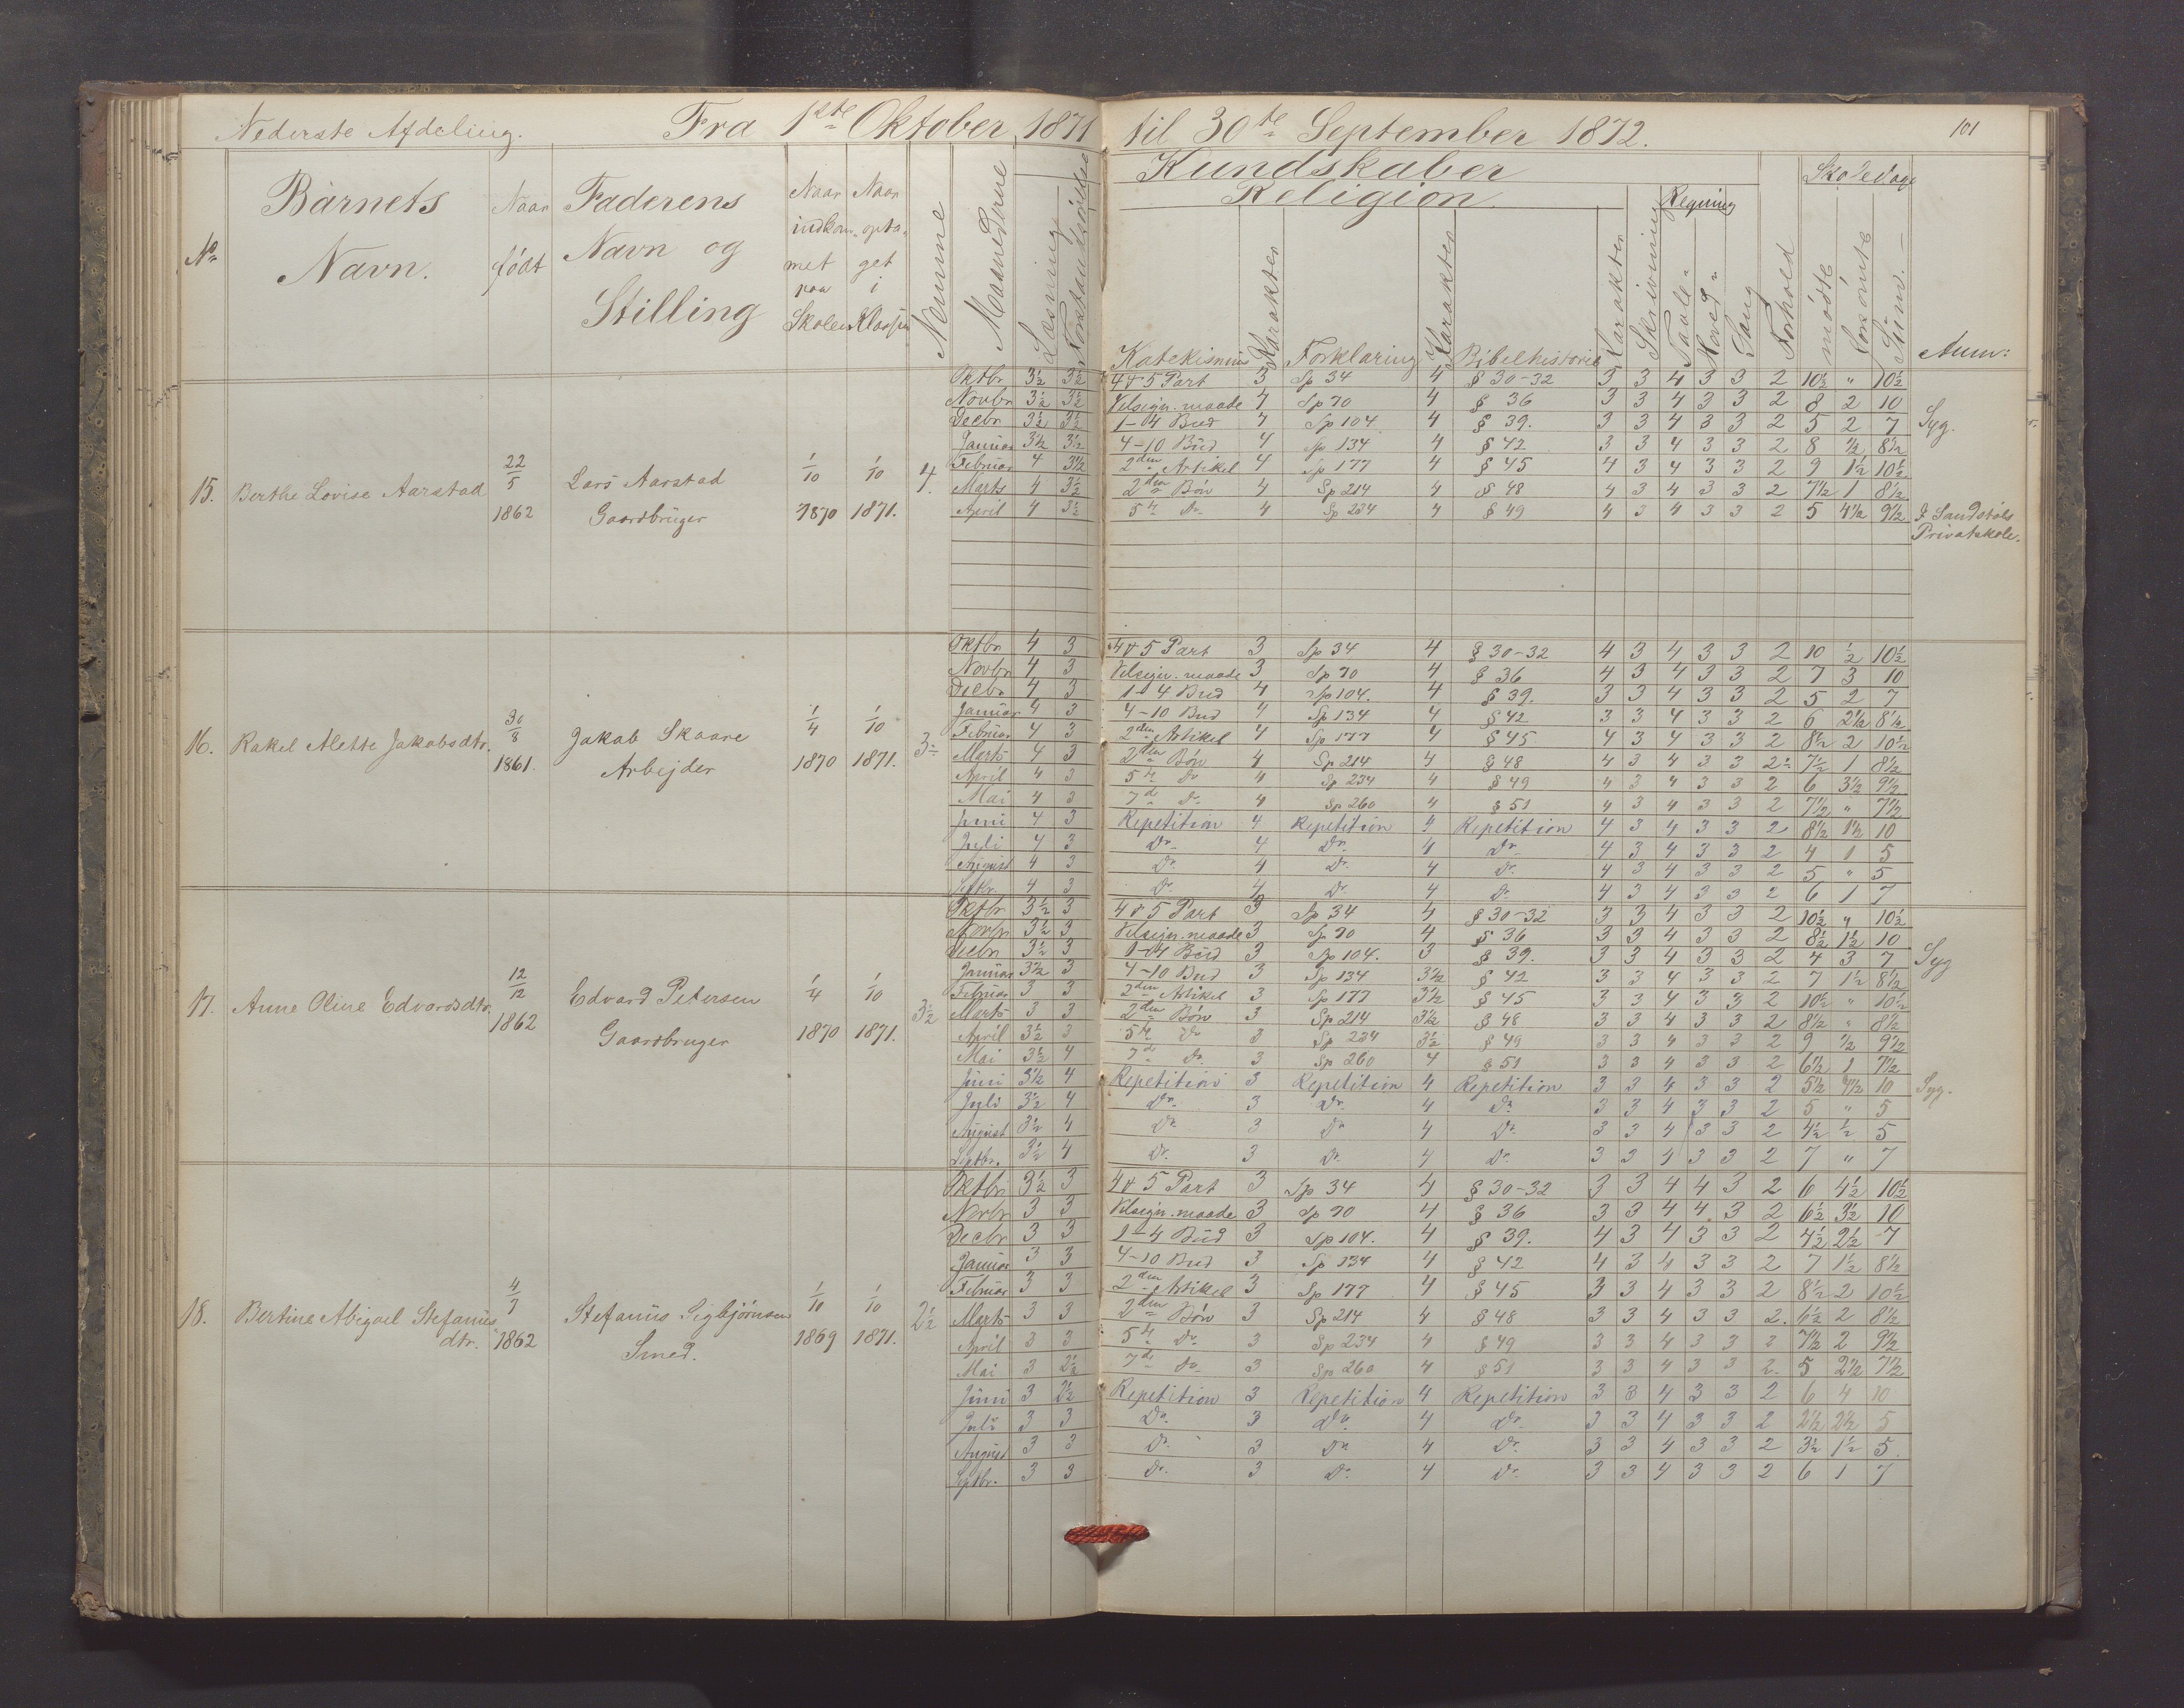 Nederste Afdeling. Fra 1ste Oktober 1871 til 30te September 1872. 101
No Barnets Navn. Naar født Faderens Navn og Stilling Naar indkommet paa Skolen Naar optaget i Klassen Nemme Maanederne Læsning Forstandsøvelse Kundskaber Religion. Katekismus Karakter Forklaring Karakter Bibelhistorie Karakter Skrivning Regning Tavle- Hoved- Sang Forhold Skoledage mødte forsømte Sum. Anm:
15. Berthe Lovise Aarstad 22/5 1862 Lars Aarstad Gaardbruger 1/10 1870 1/10 1871. 4.
Oktbr. 3½ 3½ 4 & 5 Part 3 Sp 34 4 § 30-32 3 3 4 3 3 2 10½ " 10½
Novbr 3½ 3½ Velsign. maade 4 Sp 70 4 § 36 3 3 4 3 3 2 8 2 10
Decbr 3½ 3½ 1-4 Bud 4 Sp 104 4 § 39. 3 3 4 3 3 2 5 2 7 Syg.
Januar 3½ 3½ 4-10 Bud 4 Sp 134 4 § 42 3 3 4 3 3 2 8 ½ 8½
Februar 4 3½ 2den Artikel 4 Sp 177 4 § 45 4 3 4 3 3 2 9 1½ 10½
Marts 4 3½ 2den Bøn 4 Sp 214 4 § 48 4 3 4 3 3 2 7½ 1 8½
April 4 3½ 5te Do 4 Sp 234 4 § 49 4 3 4 3 3 2 5 4½ 9½ I Sandstøls Privatskole.
16. Rakel Alette Jakobsdtr. 30/8 1861. Jakob Skaare Arbejder 1/4 1870 1/10 1871. 3÷
Oktbr 4 3 4 & 5 Part 3 Sp 34 4 § 30-32 4 3 4 3 3 2 10 ½ 10½
Novbr 4 3 Velsign. maade 3 Sp 70 4 § 36 4 3 4 3 3 2 7 3 10
Decbr 4 3 1-4 Bud 4 Sp 104. 4 § 39. 3 3 4 3 3 2 5 2 7
Januar 4 3 4-10 Bud 4 Sp 134 4 § 42 3 3 4 3 3 2 6 2½ 8½
Februar 4 3 2den Artikel 4 Sp 177 4 § 45 4 3 4 3 3 2 8½ 2 10½
Marts 4 3 2den Bøn 4 Sp 214 4 § 48 4 3 4 3 3 2÷ 7½ 1 8½
April 4 3 5te Do 4 Sp 234 4 § 49 4 3 4 3 3 2 6 3½ 9½
Mai 4 3 7d Do 4 Sp 260 4 § 51 4 3 4 3 3 2 7½ " 7½
Juni 4 3 Repetition 4 Repetition 4 Repetition 4 3 4 3 3 2 8½ 1½ 10
Juli 4 3 Do. 4 Do. 4 Do. 4 3 4 3 3 2 4 1 5
August 4 3 Do. 4 Do. 4 Do. 4 3 4 3 3 2 5 " 5
Septbr. 4 3 Do. 4 Do. 4 Do. 4 3 4 3 3 2 6 1 7
17. Anne Oline Edvardsdtr. 12/12 1862 Edvard Petersen Gaardbruger 1/4 1870 1/10 1871. 3½
Oktbr 3½ 3 4 & 5 Part 3 Sp 34 4 § 30-32 3 3 4 3 3 2 10½ " 10½
Novbr 3½ 3 Velsign. maade 3 Sp 70 4 § 36 3 3 4 3 3 2 8½ 1½ 10
Decbr 3½ 3 1-4 Bud 3 Sp 104. 3 § 39. 3 3 4 3 3 2 4 3 7 Syg
Januar 3½ 3 4-10 Bud 3 Sp 134 3½ § 42 3 3 4 3 3 2 7 1½ 8½
Februar 3 3 2den Artikel 3 Sp 177 3½ § 45 3 3 4 3 3 2 10½ " 10½
Marts 3 3 2den Bøn 3 Sp 214 3½ § 48 3 3 4 3 3 2 8½ " 8½
April 3½ 3 5te Do 3 Sp 234 3½ § 49 3 3 4 3 3 2 9 ½ 9½
Mai 3½ 4 7d Do. 3 Sp 260 4 § 51 3 3 4 3 3 2 6½ 1 7½
Juni 3½ 4 Repetition 3 Repetition 4 Repetition 3 3 4 3 3 2 5½ 4½ 10 Syg.
Juli 3½ 4 Do. 3 Do. 4 Do. 3 3 4 3 3 2 5 " 5
August 3½ 4 Do. 3 Do 4 Do. 3 3 4 3 3 2 4½ ½ 5
Septbr. 3½ 4 Do. 3 Do. 4 Do. 3 3 4 3 3 2 7 " 7
18. Bertine Abigael Stefanusdtr. 4/7 1862 Stefanus Sigbjørnsen Smed. 1/10 1869 1/10 1871. 2½
Oktbr 3½ 3 4 & 5 Part 3 Sp 34 4 § 30-32 3 3 4 4 3 2 6 4½ 10½
Novbr 3 3 Velsign. maade 3 Sp 70 4 § 36 3 3 4 4 3 2 6½ 3½ 10
Decbr 3 3 1-4 Bud 3 Sp 104. 4 § 39. 4 3 4 3 3 2 4½ 2½ 7
Januar 3 3 4-10 Bud 3 Sp 134 4 § 42 4 3 4 3 3 2 7 1½ 8½
Februar 3 3 2den Artikel 3 Sp 177 4 § 45 3 3 4 3 3 2 8½ 2 10½
Marts 3 3 2den Bøn 3 Sp 214 4 § 48 3 3 4 3 3 2. 6½ 2 8½
April 3 3 5te Do. 3 Sp 234 4 § 49 3 3 4 3 3 2 7½ 2 9½
Mai 3 2½ 7d Do 3 Sp 260 4 § 51 3 3 4 3 3 2. 5 2½ 7½
Juni 3 2½ Repetition 3 Repetition 4 Repetition 3 3 4 3 3 2 6 4 10
Juli 3 3 Do. 3 Do. 4 Do. 3 3 4 3 3 2 2½ 2½ 5
August 3 3 Do. 3 Do. 4 Do. 3 3 4 3 3 2 3½ 1½ 5
Septbr. 3 3 Do. 3 Do. 4 Do. 3 3 4 3 3 2 6 1 7